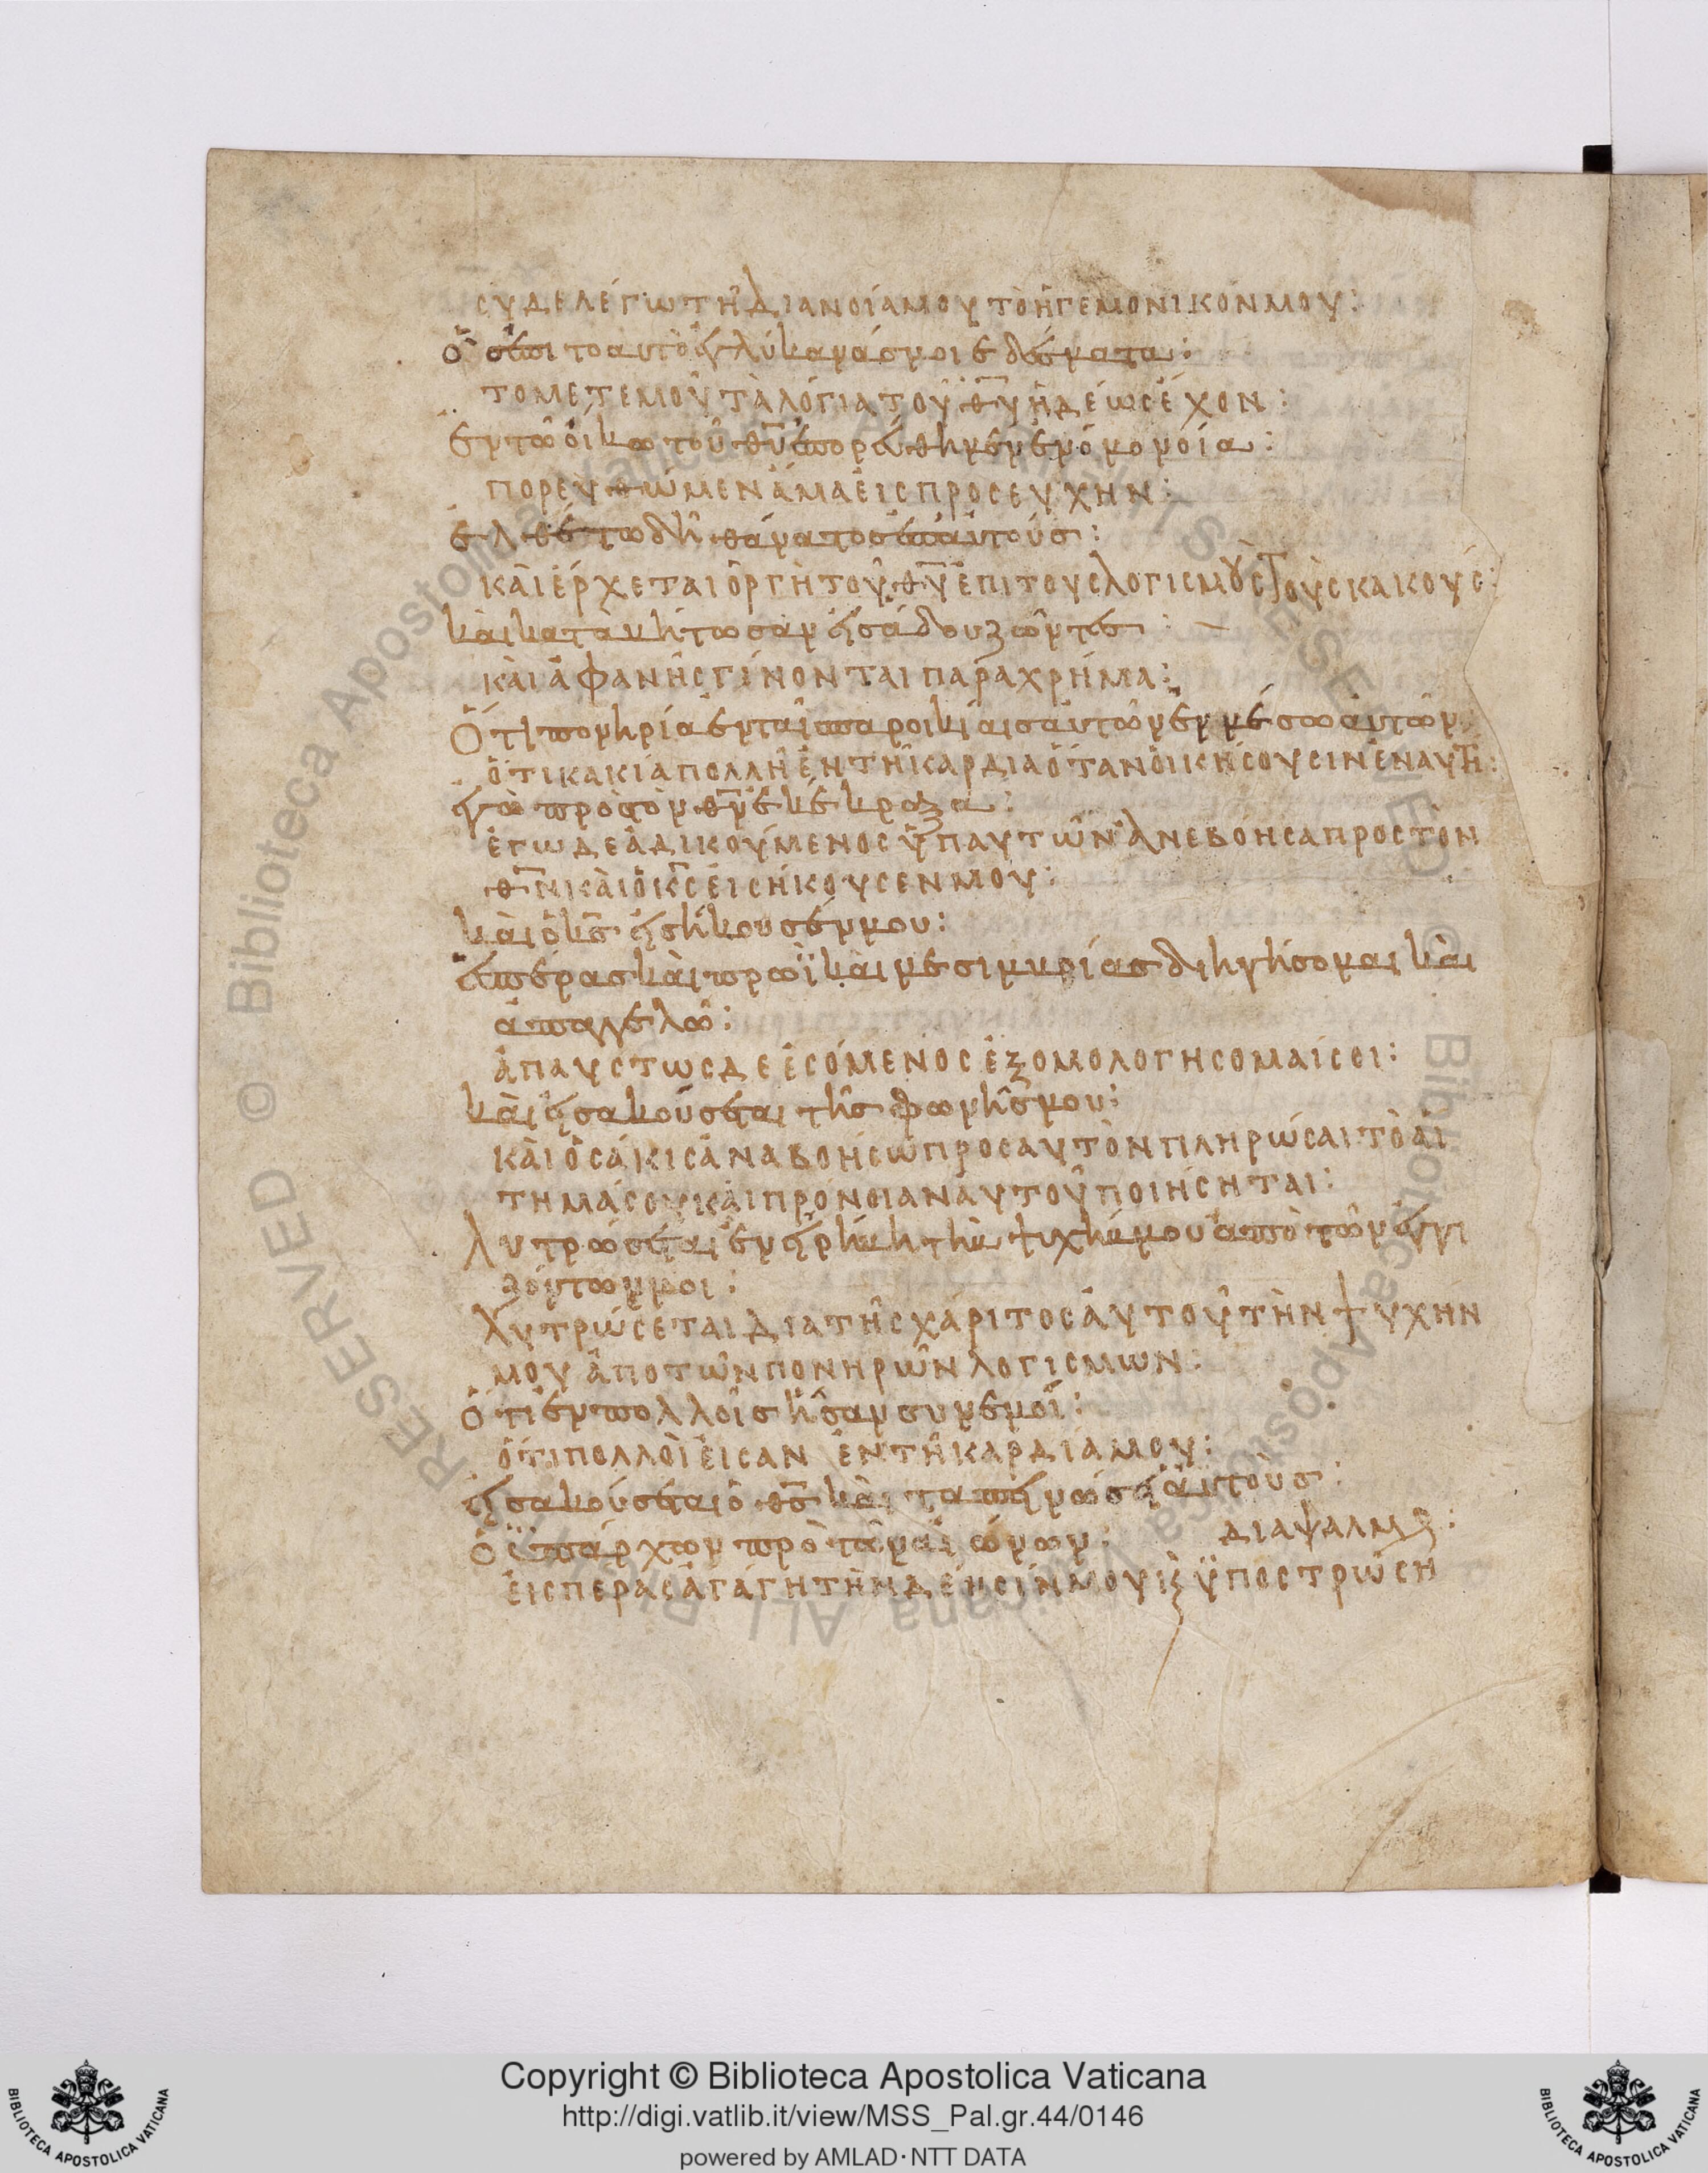 σὺ δὲ λέγω τῆ διανοία μου τὸ ἡγεμονικόν μου:
ὃς ἐπι τοαυτὸ ἐγλύκανάς μοι ἐδέσματα:
το μετ ἐμοῦ τὰ λόγια τοῦ θῦ ἡδέως ἔχον:
ἐν τῶ οἴκω τοῦ θῦ ἐπορεύθημεν ἐν ὁμονοία:
πορευθῶμεν ἅμα εἰς προσευχήν:
ἐλθέτω δὴ θάνατος ἐπ αὐτούς:
καὶ ἔρχεται ὀργὴ τοῦ θῦ ἐπι τους λογισμοὺς τοὺς κακούς:
καὶ καταβήτωσαν εἰς ἅδου ζῶντες:
καὶ ἀφανῆς γίνονται παραχρήμα:
Ὅτι πονηρία ἐν ταῖς παροικίαις αὐτῶν ἐν μέσω αὐτῶν
ὅτι κακία πολλὴ ἐν τῆ καρδία ὅταν οἰκήσουσιν ἐν αυτῆ:
ἐγὼ πρὸς τὸν θν ἐκέκραξα:
ἐγω δε ἀδικούμενος ὑπ αυτῶν ἀνεβόησα προς τὸν
θν καὶ ὁ κς εἰσήκουσεν μου:
καὶ ὁ κς εἰσήκουσέν μου:
ἑσπέρας καὶ πρωῒ καὶ μεσιμβρίας διηγήσομαι καὶ
ἀπαγγελῶ:
ἀπαυστως δε ἐσόμενος ἐξομολογήσομαί σοι:
καὶ εἰσακούσεται τῆς φωνῆς μου:
καὶ ὁσάκις ἀναβοήσω προς αυτὸν πληρώσαι τὸ αἴ
τημά σου καὶ πρόνοιαν αυτοῦ ποιήσηται:
λυτρώσεται ἐν εἰρήνη τὴν ψυχήν μου ἀπὸ τῶν ἐγγι
ζόντων μοι:
λυτρώσεται δια τῆς χάριτος αὐτοῦ τὴν ψυχήν
μου ἀπο τῶν πονηρῶν λογισμων:
ὅτι ἐν πολλοῖς ἦσαν συν ἐμοί:
ὅτι πολλοὶ εἰσαν ἐν τῆ καρδία μου:
εἰσακούσεται ὁ θς καὶ ταπεινώσει αὐτοὺς:
ὁ ὑπάρχων πρὸ τῶν αἰώνων: διαψαλμα:
εἰς περας ἀγάγη τὴν δέησίν μου κ ὑποστρώση
Copyright © Biblioteca Apostolica Vaticana
http://digi.vatlib.it/view/MSS_Pal.gr.44/0146
powered by AMLAD·NTT DATA
BIBLIOTECA APOSTOLICA VATICANA
BIBLIOTECA APOSTOLICA VATICANA